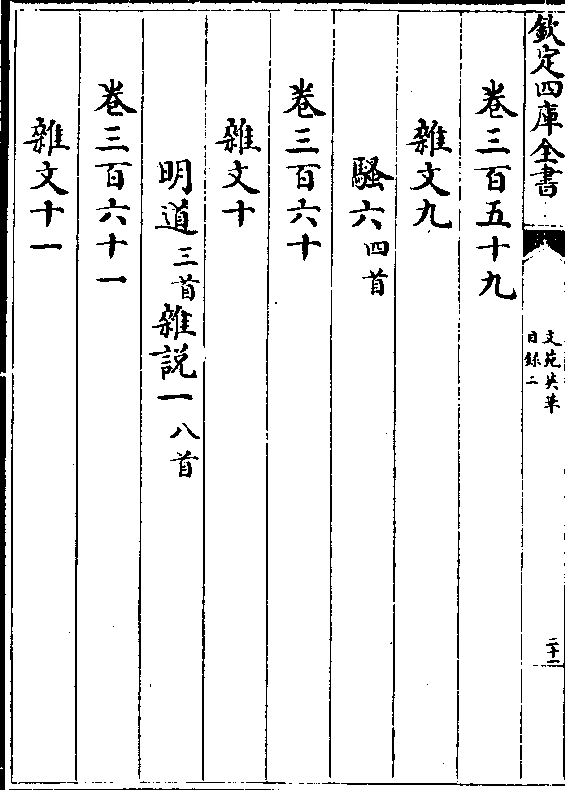 欽定四庫全書
文苑英華
目錄二
二十一
卷三百五十九
雜文九
騷六四首
卷三百六十
雜文十
明道三首雜説一八首
卷三百六十一
雜文十一